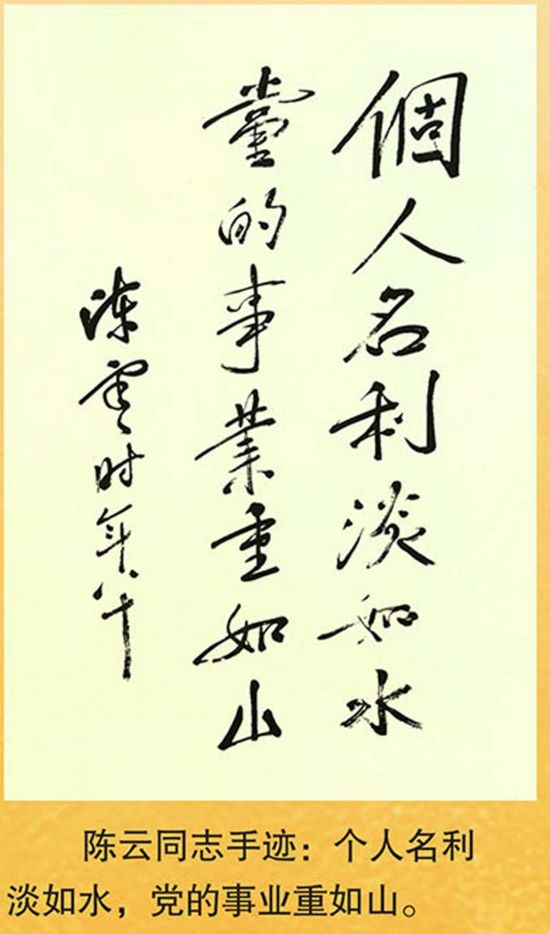 個人名利淡如水
黨的事業重如山
陳雲时年八十
陈云同志手迹：个人名利
淡如水，党的事业重如山。